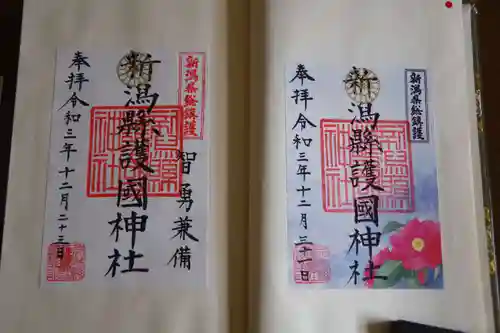 新潟縣総鎮護
智勇兼備
新潟縣護國神社
奉拝 令和三年十二月二十三日
新潟縣総鎮護
新潟縣護國神社
奉拝 令和三年十二月三十一日